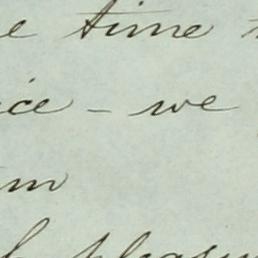 e time
ice - we
m
h pleasu